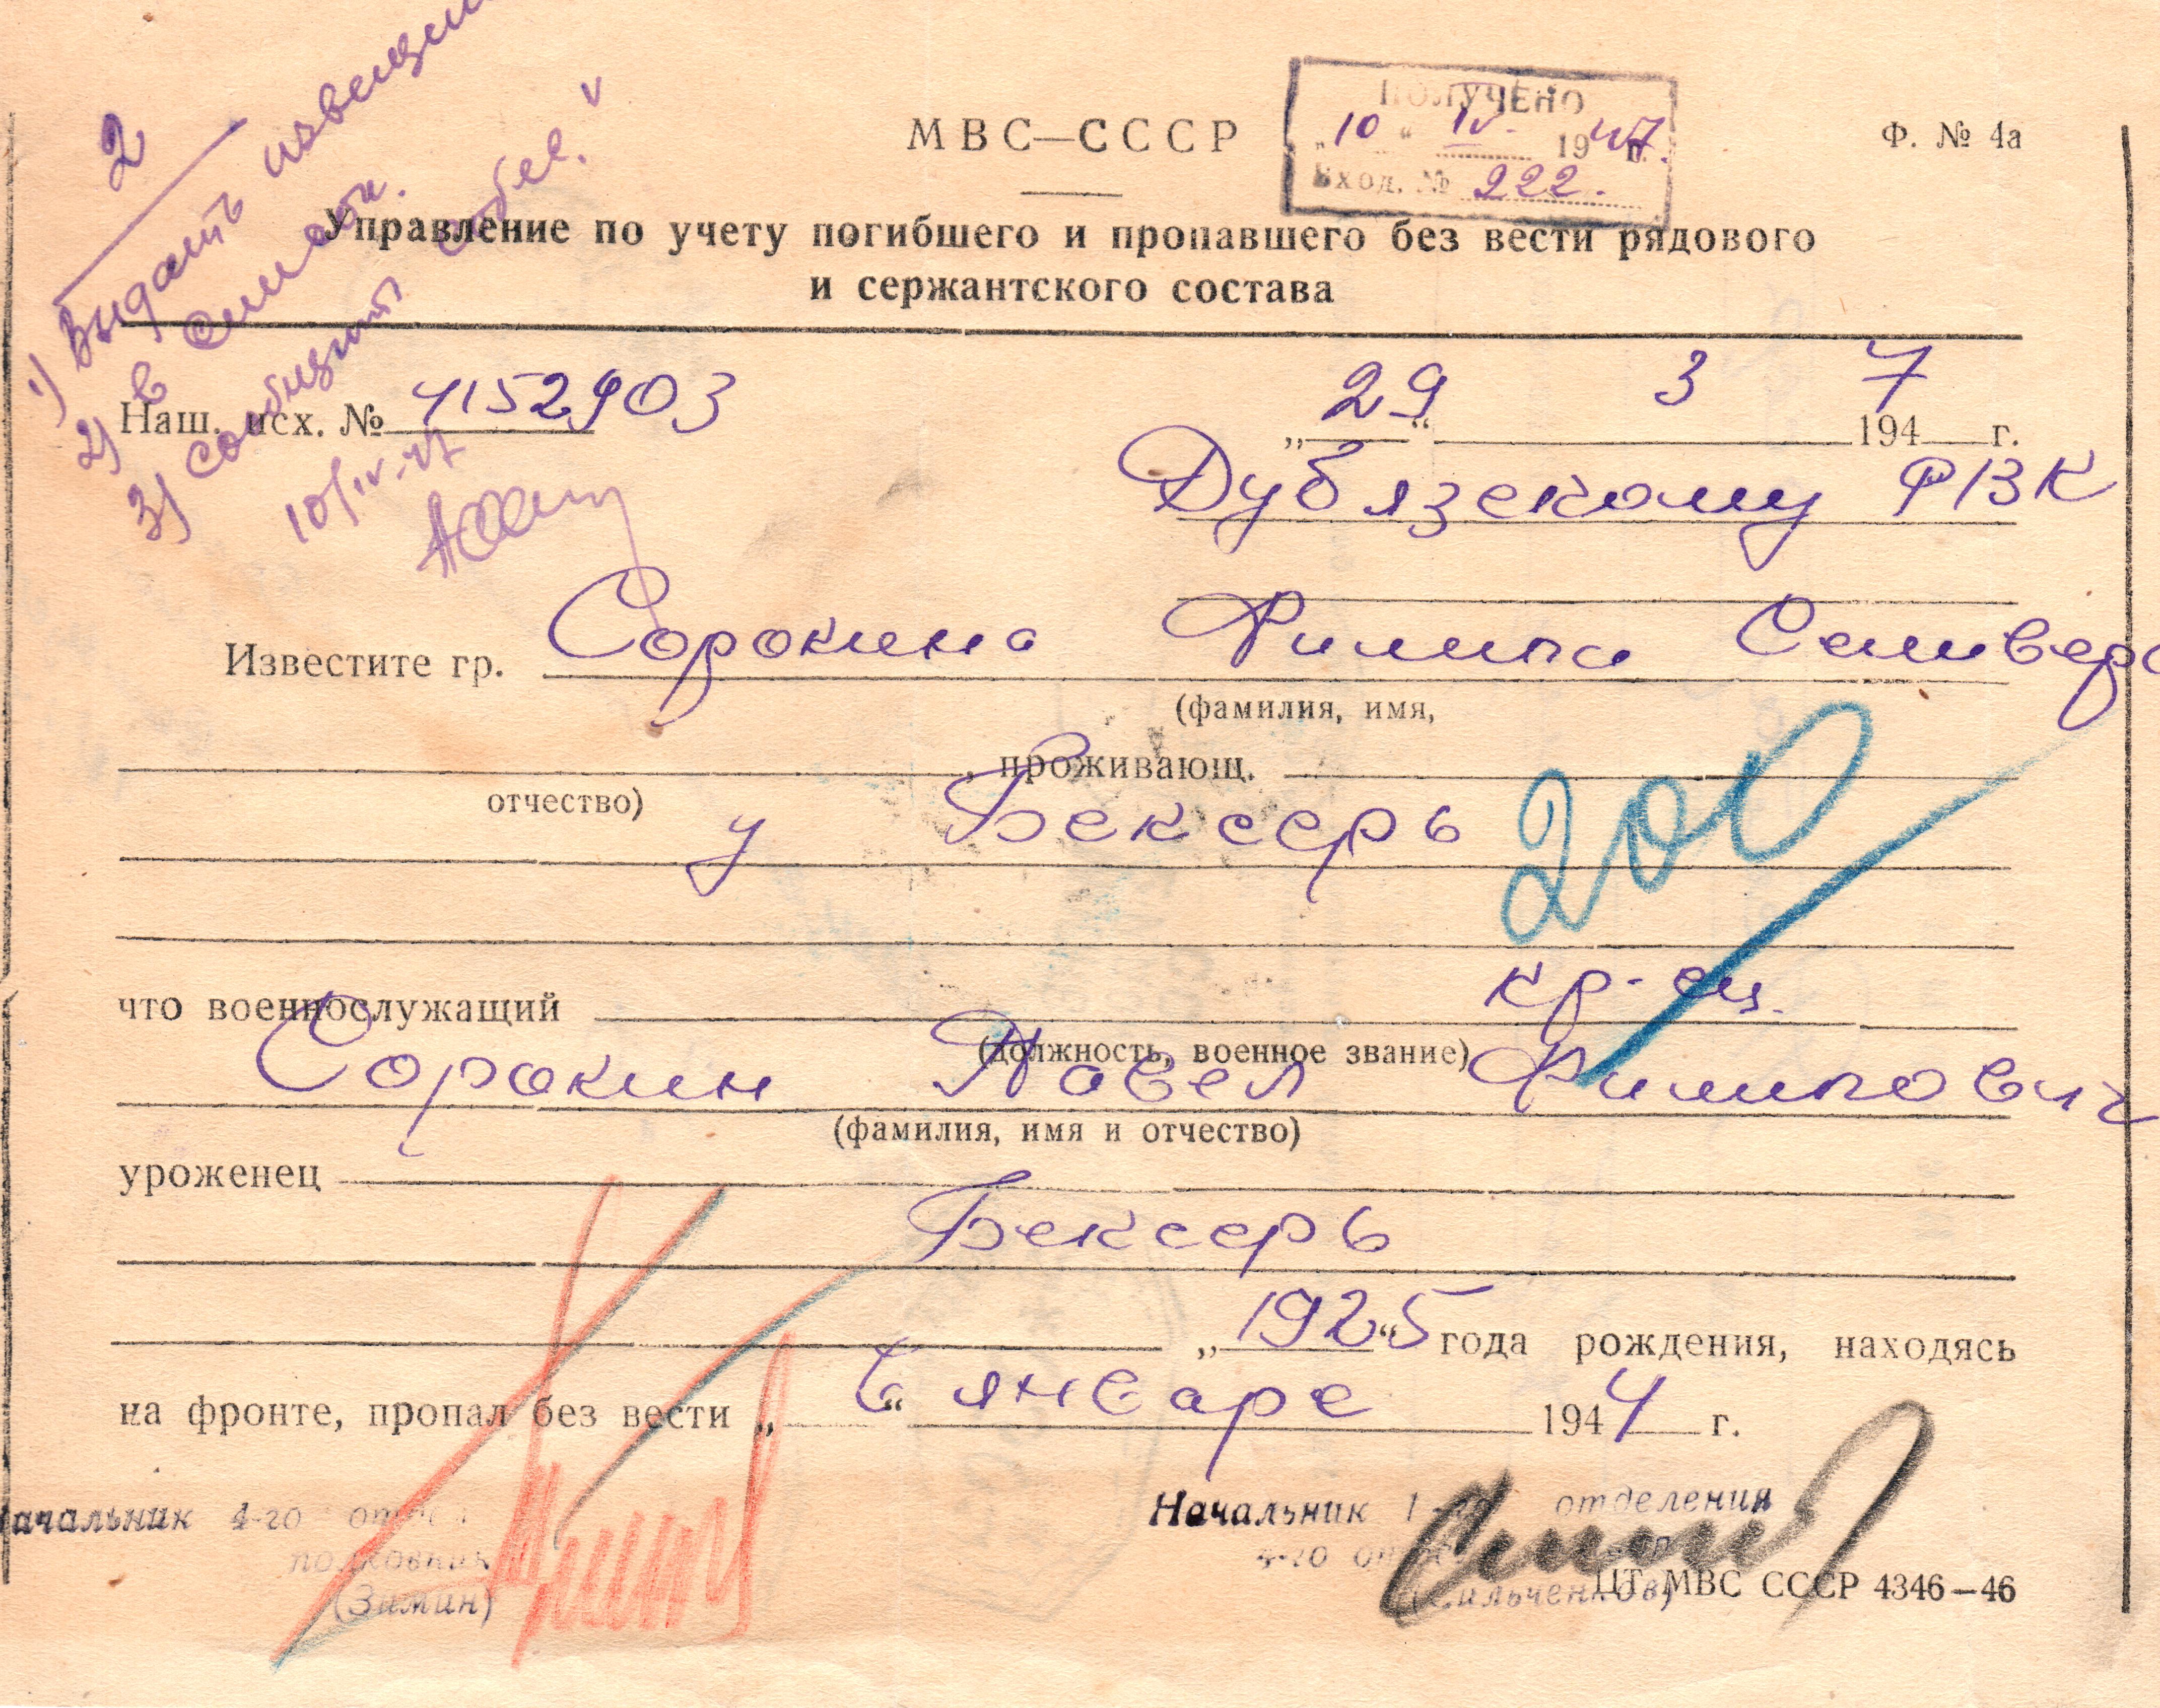 2
1) Выдать извещени
2) в
3) сообщить
10/IV-47
МВС—СССР
ПОЛУЧЕНО
„10“ IV. 1947 г.
Вход. № 222.
Ф. № 4а
Управление по учету погибшего и пропавшего без вести рядового
и сержантского состава
Наш. исх. № 4152903
„29“ 3 1947 г.
Дубязскому РВК
Известите гр. Сорокина Филипа Селивер
(фамилия, имя,
, проживающ.
отчество)
у Бексерь
200
что военнослужащий кр-ец.
(должность, военное звание)
Сорокин Павел Филипович
(фамилия, имя и отчество)
уроженец
Бексерь
„1925“ года рождения, находясь
на фронте, пропал без вести „в“ январе 1944 г.
ачальник 4-го
полковник
(Зиман)
Начальник 1-го отделения
4-го
(Сильченков)
ЦТ МВС СССР 4346—46